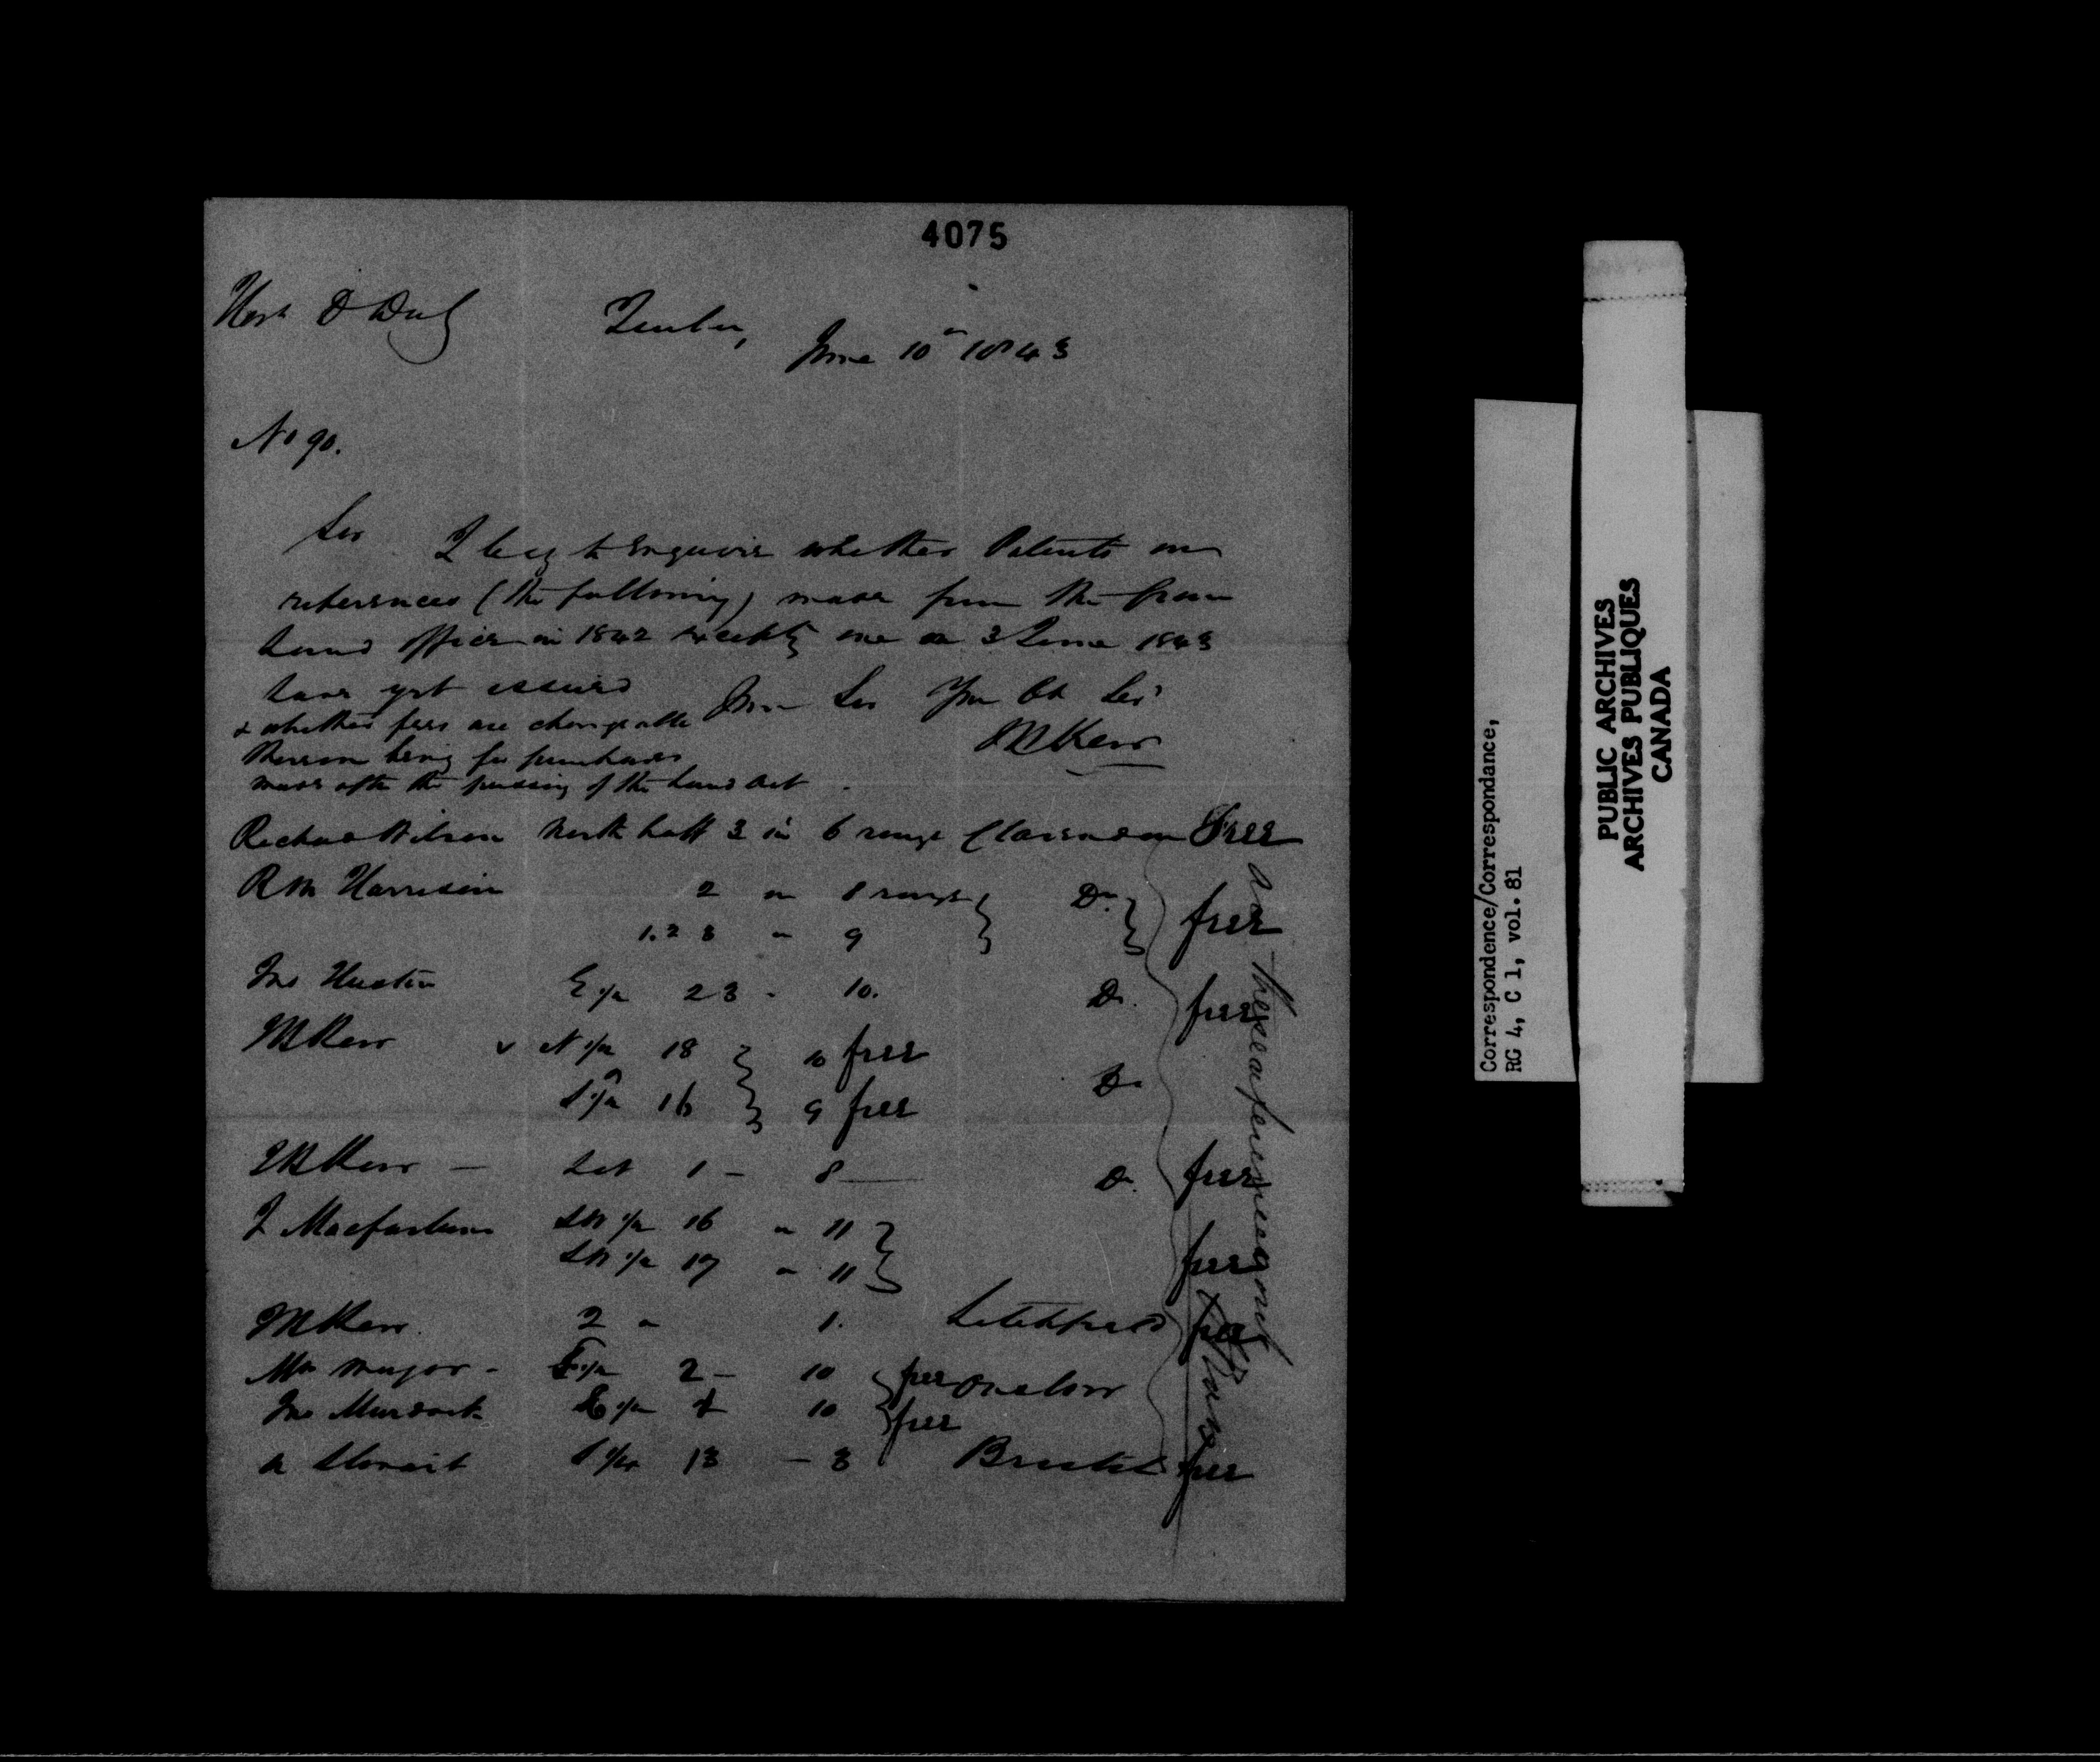 4075
Honb D Daly
Quebec, June 10th 1843
No 90.
Sir I beg to enquire whether Patents on
references (the following) made from the Crown
Land Office in 1842 & on 3 June 1843
have yet issued I am Sir Your Ob Ser
& whether fees are chargeable
thereon being for purchases
made after the passing of the Land Act
M Kerr
Richard Wilson North half 3 in 6 range Clarendon free
R M Harrison 2 in 8 range Do free
1. 2 3 " 9
Jno Huston E 1/2 23 - 10. Do. free
M Kerr N 1/2 18 10 free Do
S 1/2 16 9 free
M Kerr — Lot 1 - 8 Do. free
J Macfarlane SW 1/2 16 " 11 free
SW 1/2 17 " 11
M Kerr. 2 " 1. Litchfield free
Wm Major - 1/2 2 - 10 free Onslow
Jno Murdock E 1/2 10 free
S 1/2 13 - 3 Bristol free
Correspondence/Correspondance,
RG 4, C 1, vol. 81
PUBLIC ARCHIVES
ARCHIVES PUBLIQUES
CANADA